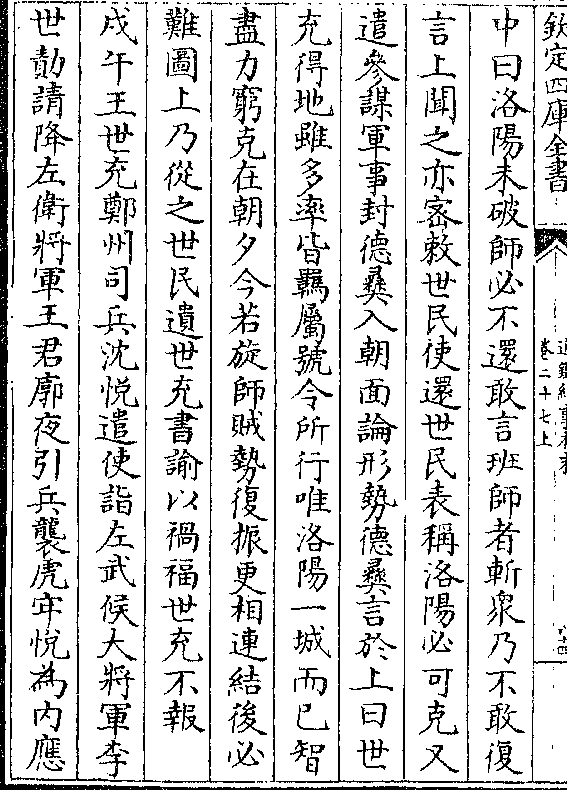 欽定四庫全書
通鑑紀事本末
卷二十七上
中曰洛陽未破師必不還敢言班師者斬衆乃不敢復
言上聞之亦密敕世民使還世民表稱洛陽必可克又
遣參謀軍事封德彝入朝面論形勢德彝言於上曰世
充得地雖多率皆羈屬號令所行唯洛陽一城而已智
盡力窮克在朝夕今若旋師賊勢復振更相連結後必
難圖上乃從之世民遺世充書諭以禍福世充不報
戊午王世充鄭州司兵沈悅遣使詣左武候大將軍李
世勣請降左衛將軍王君廓夜引兵襲虎牢悅為內應